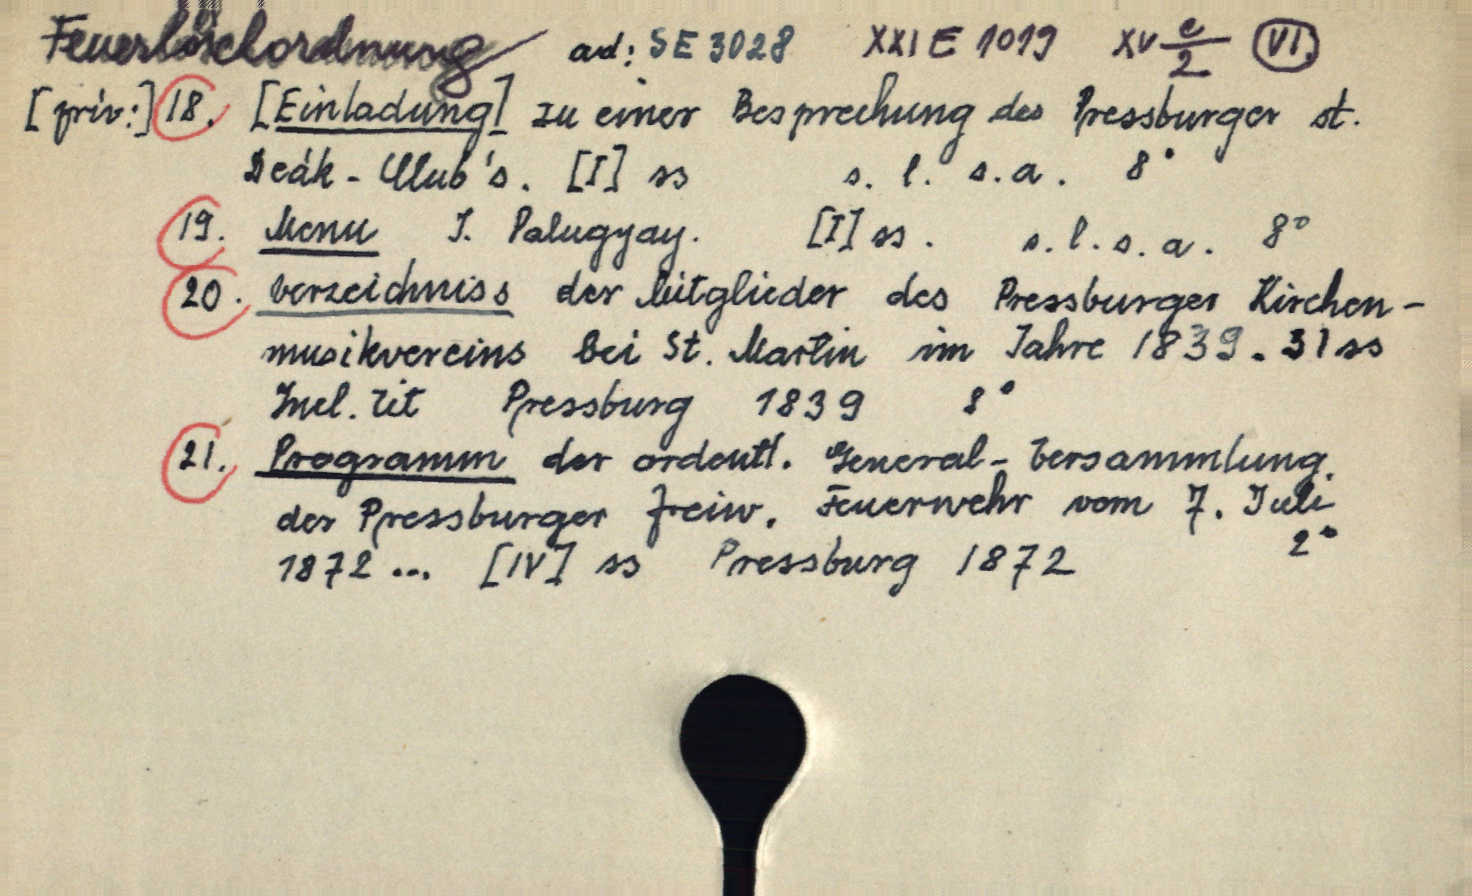 Feuerlöschordnung ad: SE 3028 XXI E 1019 XV e/2 VI.
[priv:] 18. [Einladung] zu einer Besprechung des Pressburger st.
Deák-Club's. [I] ss s. l. s. a. 8°
19. Menu J. Palugyay. [I] ss. s. l. s. a. 8°
20. Verzeichniss der Mitglieder des Pressburger Kirchen-
musikvereins bei St. Martin im Jahre 1839. 31 ss
Incl. tit Pressburg 1839 8°
21. Programm der ordentl. General-Versammlung
der Pressburger freiw. Feuerwehr vom 7. Juli
1872... [IV] ss Pressburg 1872 2°